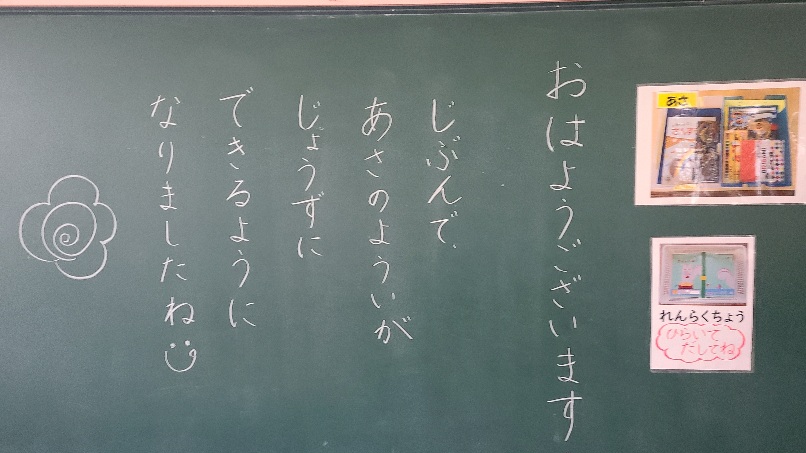 おはようございます
じぶんで、
あさのよういが
じょうずに
できるように
なりましたね
あさ
れんらくちょう
ひらいて
だしてね